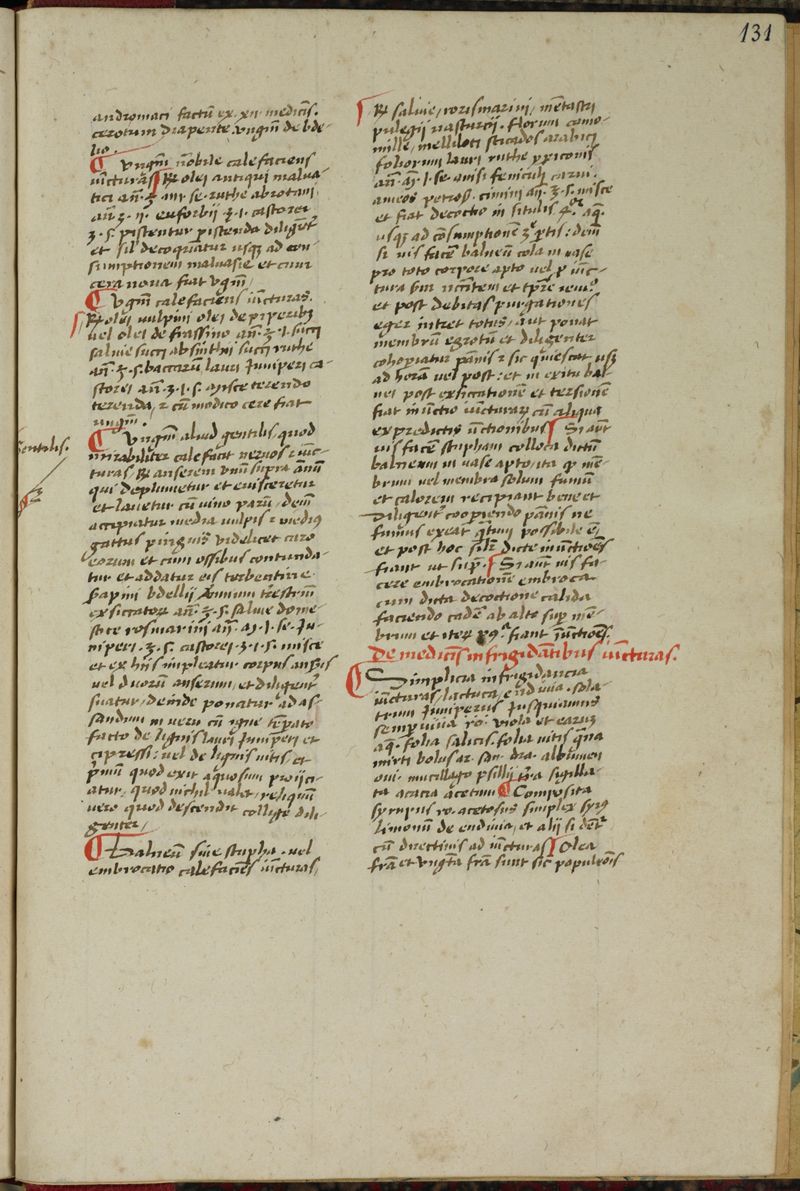 131
andromaci factū ex. xii. medicīs.
cerotum diapente. vngūm de bde-
lio.
Vngūm nōbile calefaciens
iūcturas ℞ olei antiqui malua-
tici añ. ℥ iiii. se. ruthe abrotani
añ. ℥. ii. euforbij ℥. i. castorei
℥. s. pistentur pistenda diligēt
et sil decoquātur usqꝫ ad con-
sumptionem maluasie et cum
cera noua fiat vgm̄
Vgm̄ calefaciens iūcturas.
℞ olei uulpini olei de piperibꝫ
uel olei de frassino añ. ℥. i. succi
saluie succi absinthii succi ruthe
añ. ℥. s. baccarū lauri Juniperi ca-
storei añ. ℥. i. s. misce terendo
terenda, ⁊ cū modico cere fiat
ungm̄.
Gentilis.
Vngm̄ aliud gentilis, quod
mirabiliter calefacit neruos ⁊ iūc-
turas ℞ anserem vnū supra ānū
qui deplumetur et euisceretur
et lauetur cū uino parū, dem̄
accipiatur media uulpis ⁊ mediꝰ
gattus pinguis videlicet caro
eorum et cum ossibus contunda-
tur et addatur eis terbentine
sapini bdellij
exsiccatoꝝ añ. ℥. s. saluie dome-
stice rosmarini añ. ɱ. i. se. Ju-
niperi. ℥. s. castorei ℥. i. s. misce
et ex hiis impleatur corpus anseris
uel duorū anserum, et diligent᷑
suatur, deinde ponatur ad as-
sandum in ueru cū igne tēpato
facto de lignis lauri Juniperi et
cipressi: uel de lignis uitis, et
pʳmū quod exit aquosum proiici-
atur, quod nichil ualet, reliquū
uero quod descendit collige dili-
genter,
Balneū siue stupha. uel
embrocatio calefaciēs iūcturas,
℞ saluie, rorismarini, mētastri
pulegij nasturcij. florum camo-
mille, melliloti sticados arabici
foliorum lauri ruthe
añ. ɱ. i. se. anisi feniculi carui.
ameos petros. cimini añ. ℥. s. misce
et fiat decoctio in situlis 4ᵒʳ aq̄.
usqꝫ ad cōsumptionē 3ᵉ ꝑtis: dem̄
si uis facē balneū cola in uase
pro toto corpore apto uel ꝑ iūc-
tura
et post debitas purgationes
eger intret totus, aut ponat
membrū egrotū et diligenter
cohopiatur pānis ⁊ sic quiescat usqꝫ
ad horā uel post: et in exitu bal-
nei post exsiccationē et tersionē
fiat inūctio iūcturaꝝ cū aliqua
ex predictis ūctionibus Si aūt
uis facē stupham colloca dictū
balneum in uase apto, ita ꝙ mē-
brum uel membra solum fumū
et calorem recipiant bene et
diligent᷑ cooperiendo pānis ne
fumus exeat q̄tum possibile ē
et post hoc silʳ dicte inūctiōes
fiant ut supᵃ. Si aūt uis fa-
cere embrocationē embroca
cum dicta decoctione calida
faciendo cadē ab alto sup mē-
brum et iteꝝ fiant iūctiōes.
De medicīs infrigidātibus iūcturas.
Simplicia infrigidancia
iūcturas, lactuca, endiuia. sola-
trum Juniperus Jusquiamus
semperuiua ro. viola et earūꝫ
aq̄. folia salicis. folia uitis
mirti bolus ar. san. dra. albumen
oui. mucillago psillij tʳra sigilla-
ta acacia acetum Composita
syrupus ro. acetosus simplex syrꝯ
limonū de endiuia, et alij si dēt᷑
cū directiuis ad iūcturas Olea
frā et vngta frā sunt sic̄ populeōis